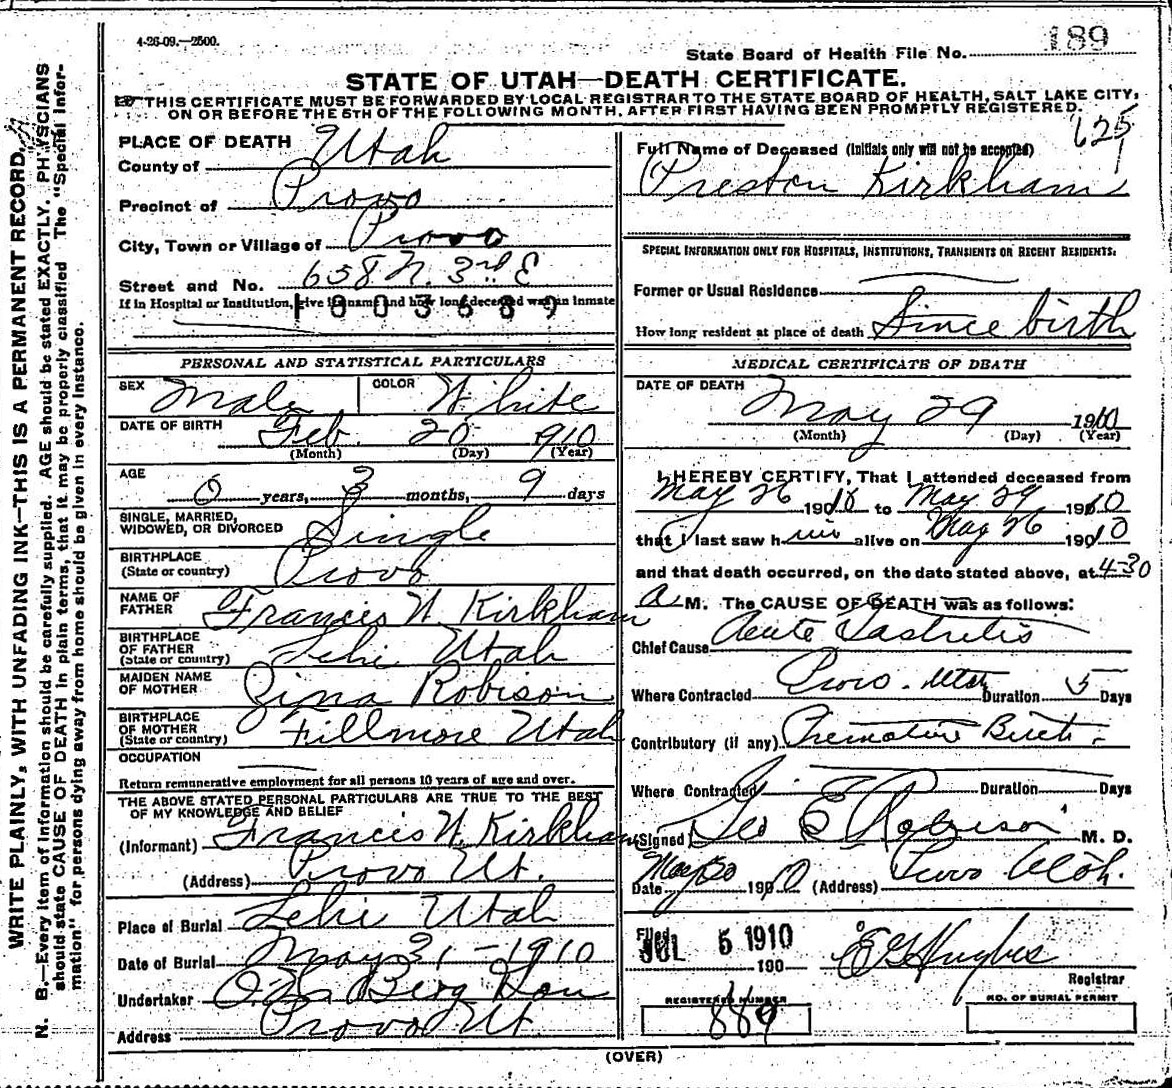 4-26-09.—2500.
State Board of Health File No. 189
STATE OF UTAH—DEATH CERTIFICATE.
THIS CERTIFICATE MUST BE FORWARDED BY LOCAL REGISTRAR TO THE STATE BOARD OF HEALTH, SALT LAKE CITY,
ON OR BEFORE THE 5TH OF THE FOLLOWING MONTH, AFTER FIRST HAVING BEEN PROMPTLY REGISTERED.
625
WRITE PLAINLY, WITH UNFADING INK—THIS IS A PERMANENT RECORD.
N. B.—Every item of information should be carefully supplied. AGE should be stated EXACTLY. PHYSCIANS
should state CAUSE OF DEATH in plain terms, that it may be properly classified The "Special Infor-
mation" for persons dying away from home should be given in every instance.
PLACE OF DEATH
County of Utah
Precinct of Provo
City, Town or Village of Provo
Street and No. 658 N. 3rd E
If in Hospital or Institution, give its name and how long deceased was an inmate
1003689
PERSONAL AND STATISTICAL PARTICULARS
SEX Male COLOR White
DATE OF BIRTH Feb. 20 1910
(Month) (Day) (Year)
AGE
0 years, 3 months, 9 days
SINGLE, MARRIED,
WIDOWED, OR DIVORCED Single
BIRTHPLACE
(State or country) Provo
NAME OF
FATHER Francis W. Kirkham
BIRTHPLACE
OF FATHER
(State or country) Lehi Utah
MAIDEN NAME
OF MOTHER Zina Robison
BIRTHPLACE
OF MOTHER
(State or country) Fillmore Utah
OCCUPATION
Return remunerative employment for all persons 10 years of age and over.
THE ABOVE STATED PERSONAL PARTICULARS ARE TRUE TO THE BEST
OF MY KNOWLEDGE AND BELIEF
(Informant) Francis W. Kirkham
(Address) Provo Ut.
Place of Burial Lehi Utah
Date of Burial May 31-1910
Undertaker Berg Son
Address Provo Ut.
Full Name of Deceased (Initials only will not be accepted)
Preston Kirkham
SPECIAL INFORMATION ONLY FOR HOSPITALS, INSTITUTIONS, TRANSIENTS OR RECENT RESIDENTS:
Former or Usual Residence
How long resident at place of death Since birth
MEDICAL CERTIFICATE OF DEATH
DATE OF DEATH
May 29 1910
(Month) (Day) (Year)
I HEREBY CERTIFY, That I attended deceased from
May 26 1910 to May 29 1910
that I last saw him alive on May 26 1910
and that death occurred, on the date stated above, at 4-30
a M. The CAUSE OF DEATH was as follows:
Chief Cause Acute Gastritis
Where Contracted Provo. Utah Duration 5 Days
Contributory (if any) Premature Birth.
Where Contracted Duration Days
(Signed) Geo E Robison M. D.
Date May 30 1910 (Address) Provo Utah.
Filed
JUL 5 1910
190
E G Hughes
Registrar
REGISTERED NUMBER
889
NO. OF BURIAL PERMIT
(OVER)